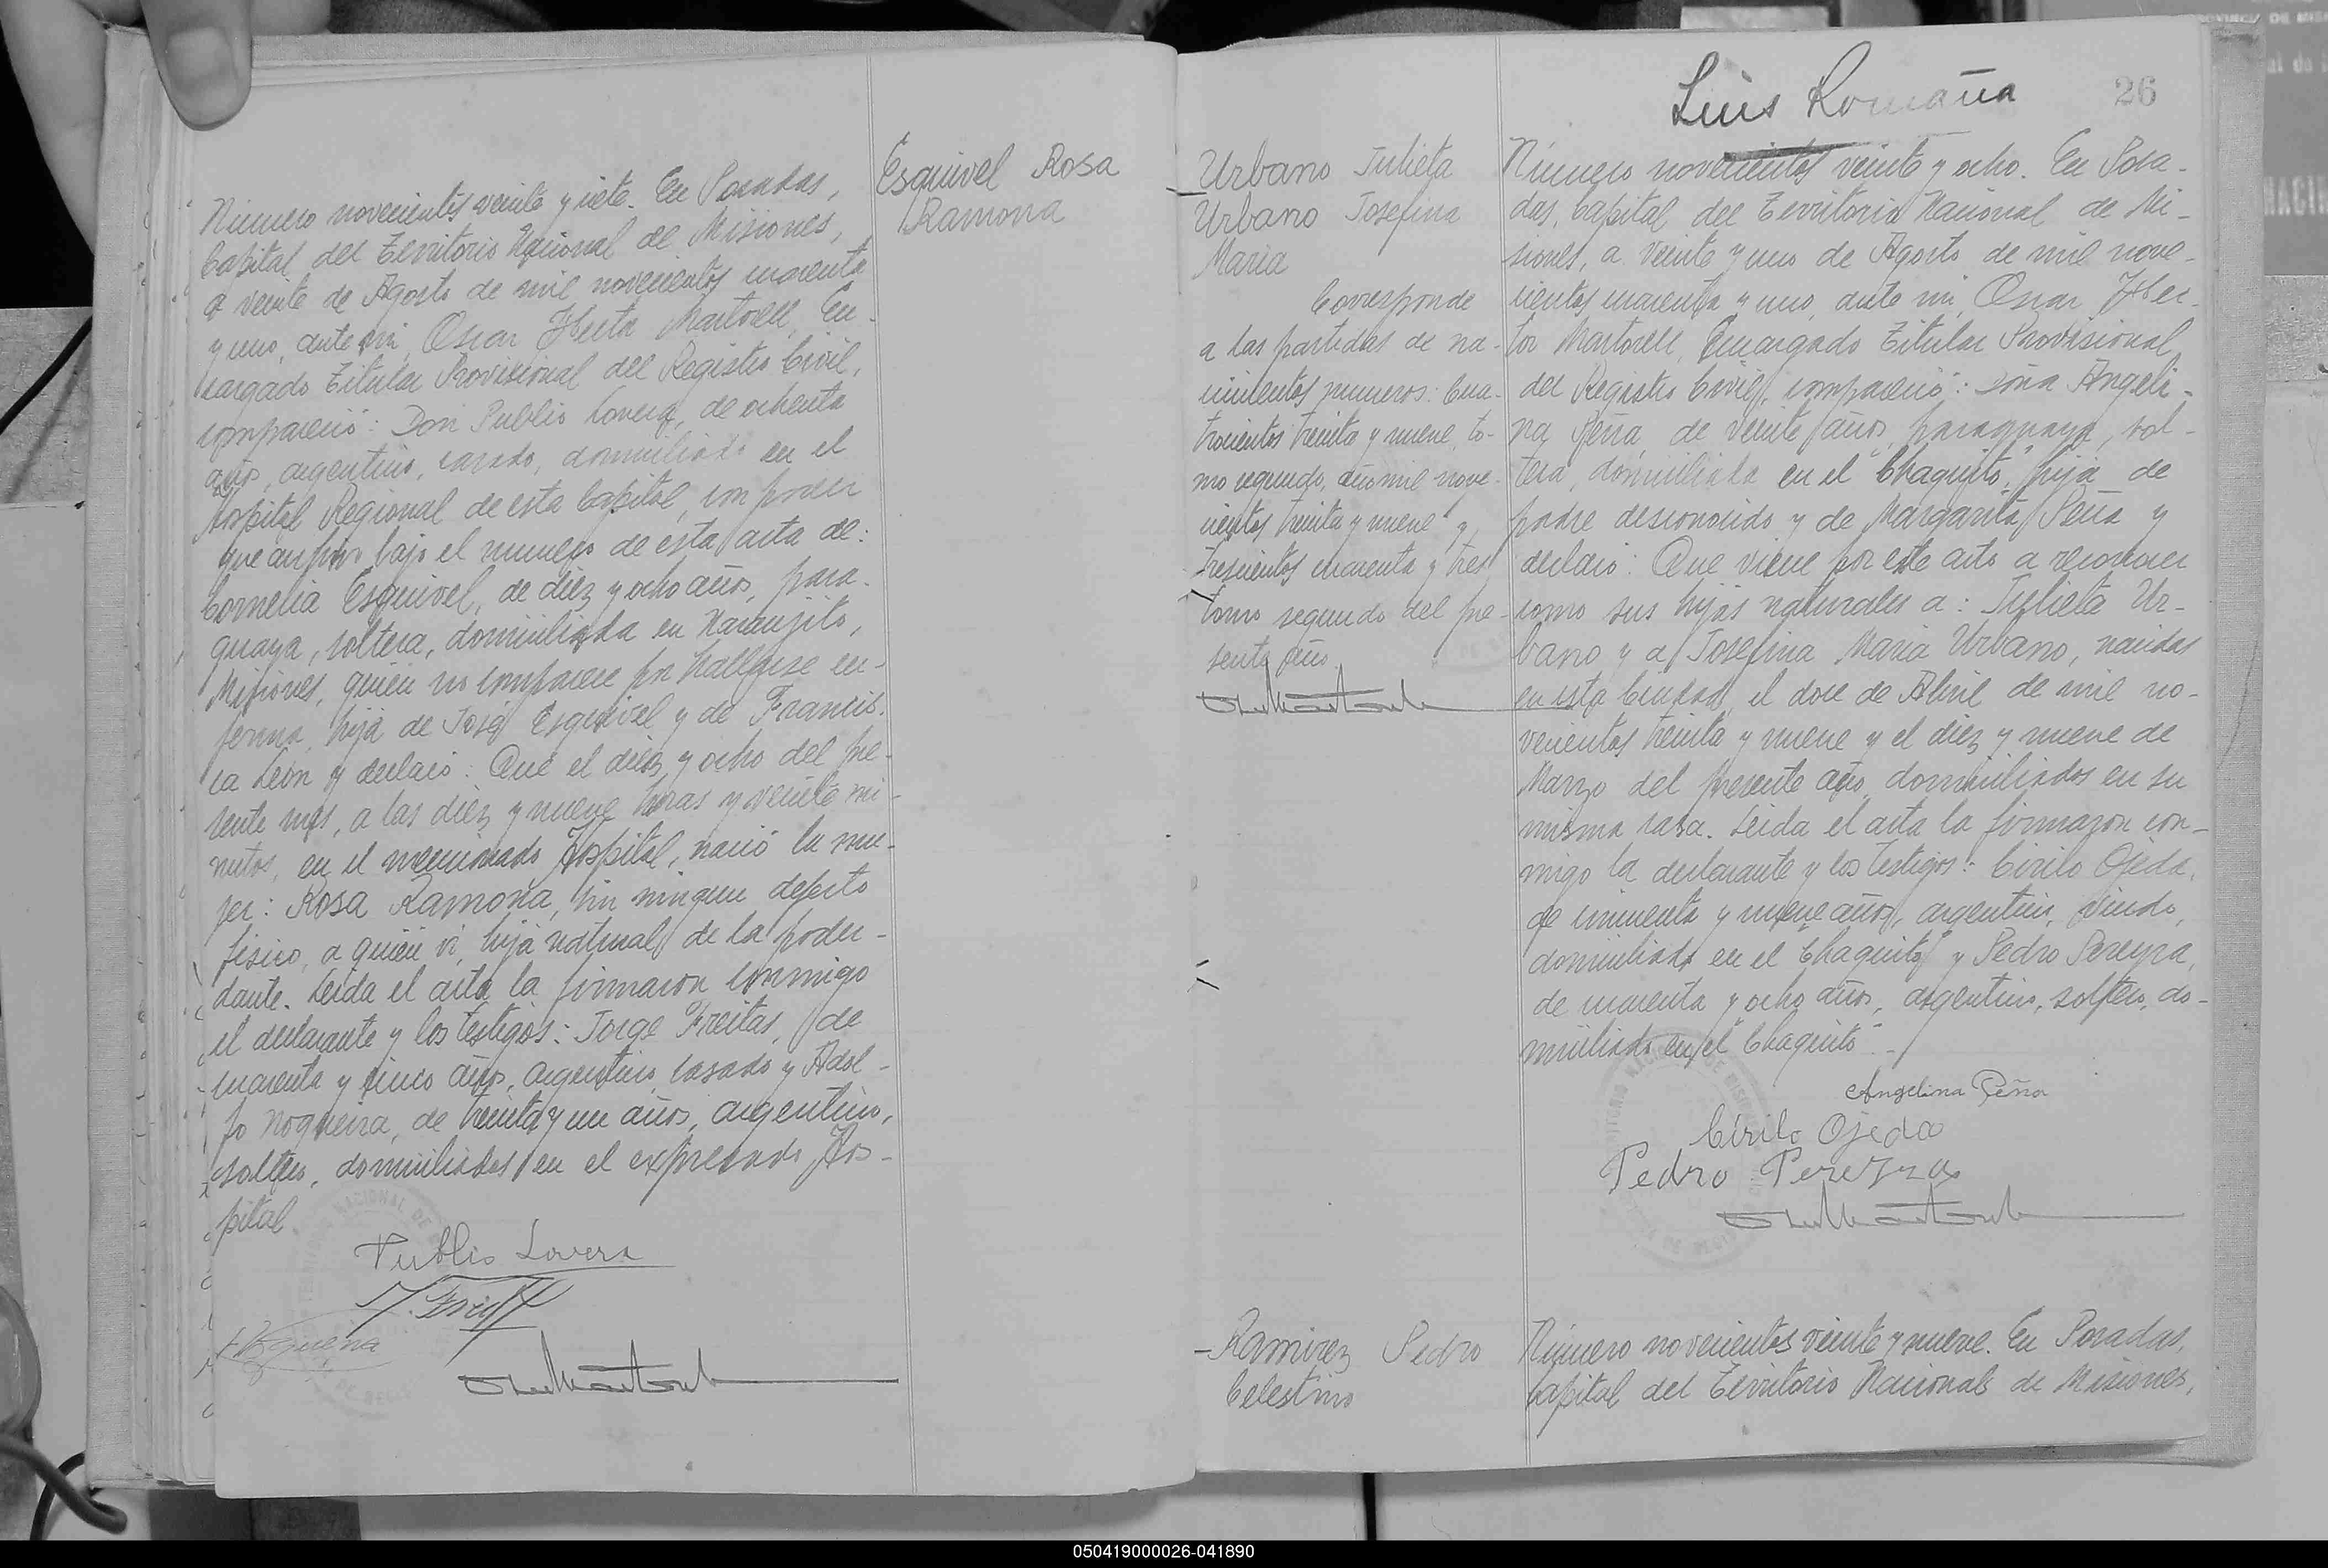 Número novecientos veinte y siete. En Posadas,
Capital del Territorio Nacional de Misiones,
a veinte de Agosto de mil novecientos cuarenta
y uno, ante mi, Oscar Hector Martorell, En-
cargado Titular Provisional del Registro Civil,
compareció: Don Publio Lovera, de ochenta
años, argentino, casado, domiciliado en el
Hospital Regional de esta Capital, con poder
que archivo bajo el numero de esta acta de:
Cornelia Esquivel, de diez y ocho años, para-
guaya, soltera, domiciliada en Naranjito,
Misiones, quién no comparece por hallarse en-
ferma, hija de José Esquivel y de Francis-
ca León y declaró: Que el diez y ocho del pre-
sente mes, a las diez y nueve horas y veinte mi-
nutos, en el mencionado Hospital, nació la mu-
jer: Rosa Ramona, sin ningun defecto
fisico, a quién vi, hija natural de la poder-
dante. Leida el acta la firmaron conmigo
el declarante y los testigos: Jorge Freitas, de
cuarenta y cinco años, argentino, casado y Adol-
fo Nogueira, de treinta y un años, argentino,
soltero, domiciliados en el expresado Hos-
pital
Publio Lovera
Esquivel Rosa
Ramona
26
Luis Romaña
Urbano Julieta
Urbano Josefina
Maria
Corresponde
a las partidas de na-
cimientos numeros: Cua-
trocientos treinta y nueve, to-
mo segundo, año mil nove-
cientos treinta y nueve y
trescientos cuarenta y tres
tomo segundo del pre-
sente año.
Número novecientos veinte y ocho. En Posa-
das, Capital del Territorio Nacional de Mi-
siones, a veinte y uno de Agosto de mil nove-
cientos cuarenta y uno, ante mi, Oscar Hec-
tor Martorell, Encargado Titular Provisional
del Registro Civil, compareció: Doña Angeli-
na Peña, de veinte años, paraguaya, sol-
tera, domiciliada en el "Chaquito", hija de
padre desconocido y de Margarita Peña y
declaró: Que viene por este acto a reconocer
como sus hijas naturales a: Julieta Ur-
bano y a Josefina Maria Urbano, nacidas
en esta Ciudad, el doce de Abril de mil no-
vecientos treinta y nueve y el diez y nueve de
Marzo del presente año, domiciliados en su
misma casa. Leida el acta la firmaron con-
migo la declarante y los testigos: Cirilo Ojeda,
de cincuenta y nueve años, argentino, viudo,
domiciliado en el "Chaquito" y Pedro Pereyra,
de cuarenta y ocho años, argentino, soltero, do-
miciliado en el "Chaquito".-
Angelina Peña
Cirilo Ojeda
Pedro Pereyra
Ramirez Pedro
Celestino
Número novecientos veinte y nueve. En Posadas,
Capital del Territorio Nacional de Misiones,
050419000026-041890